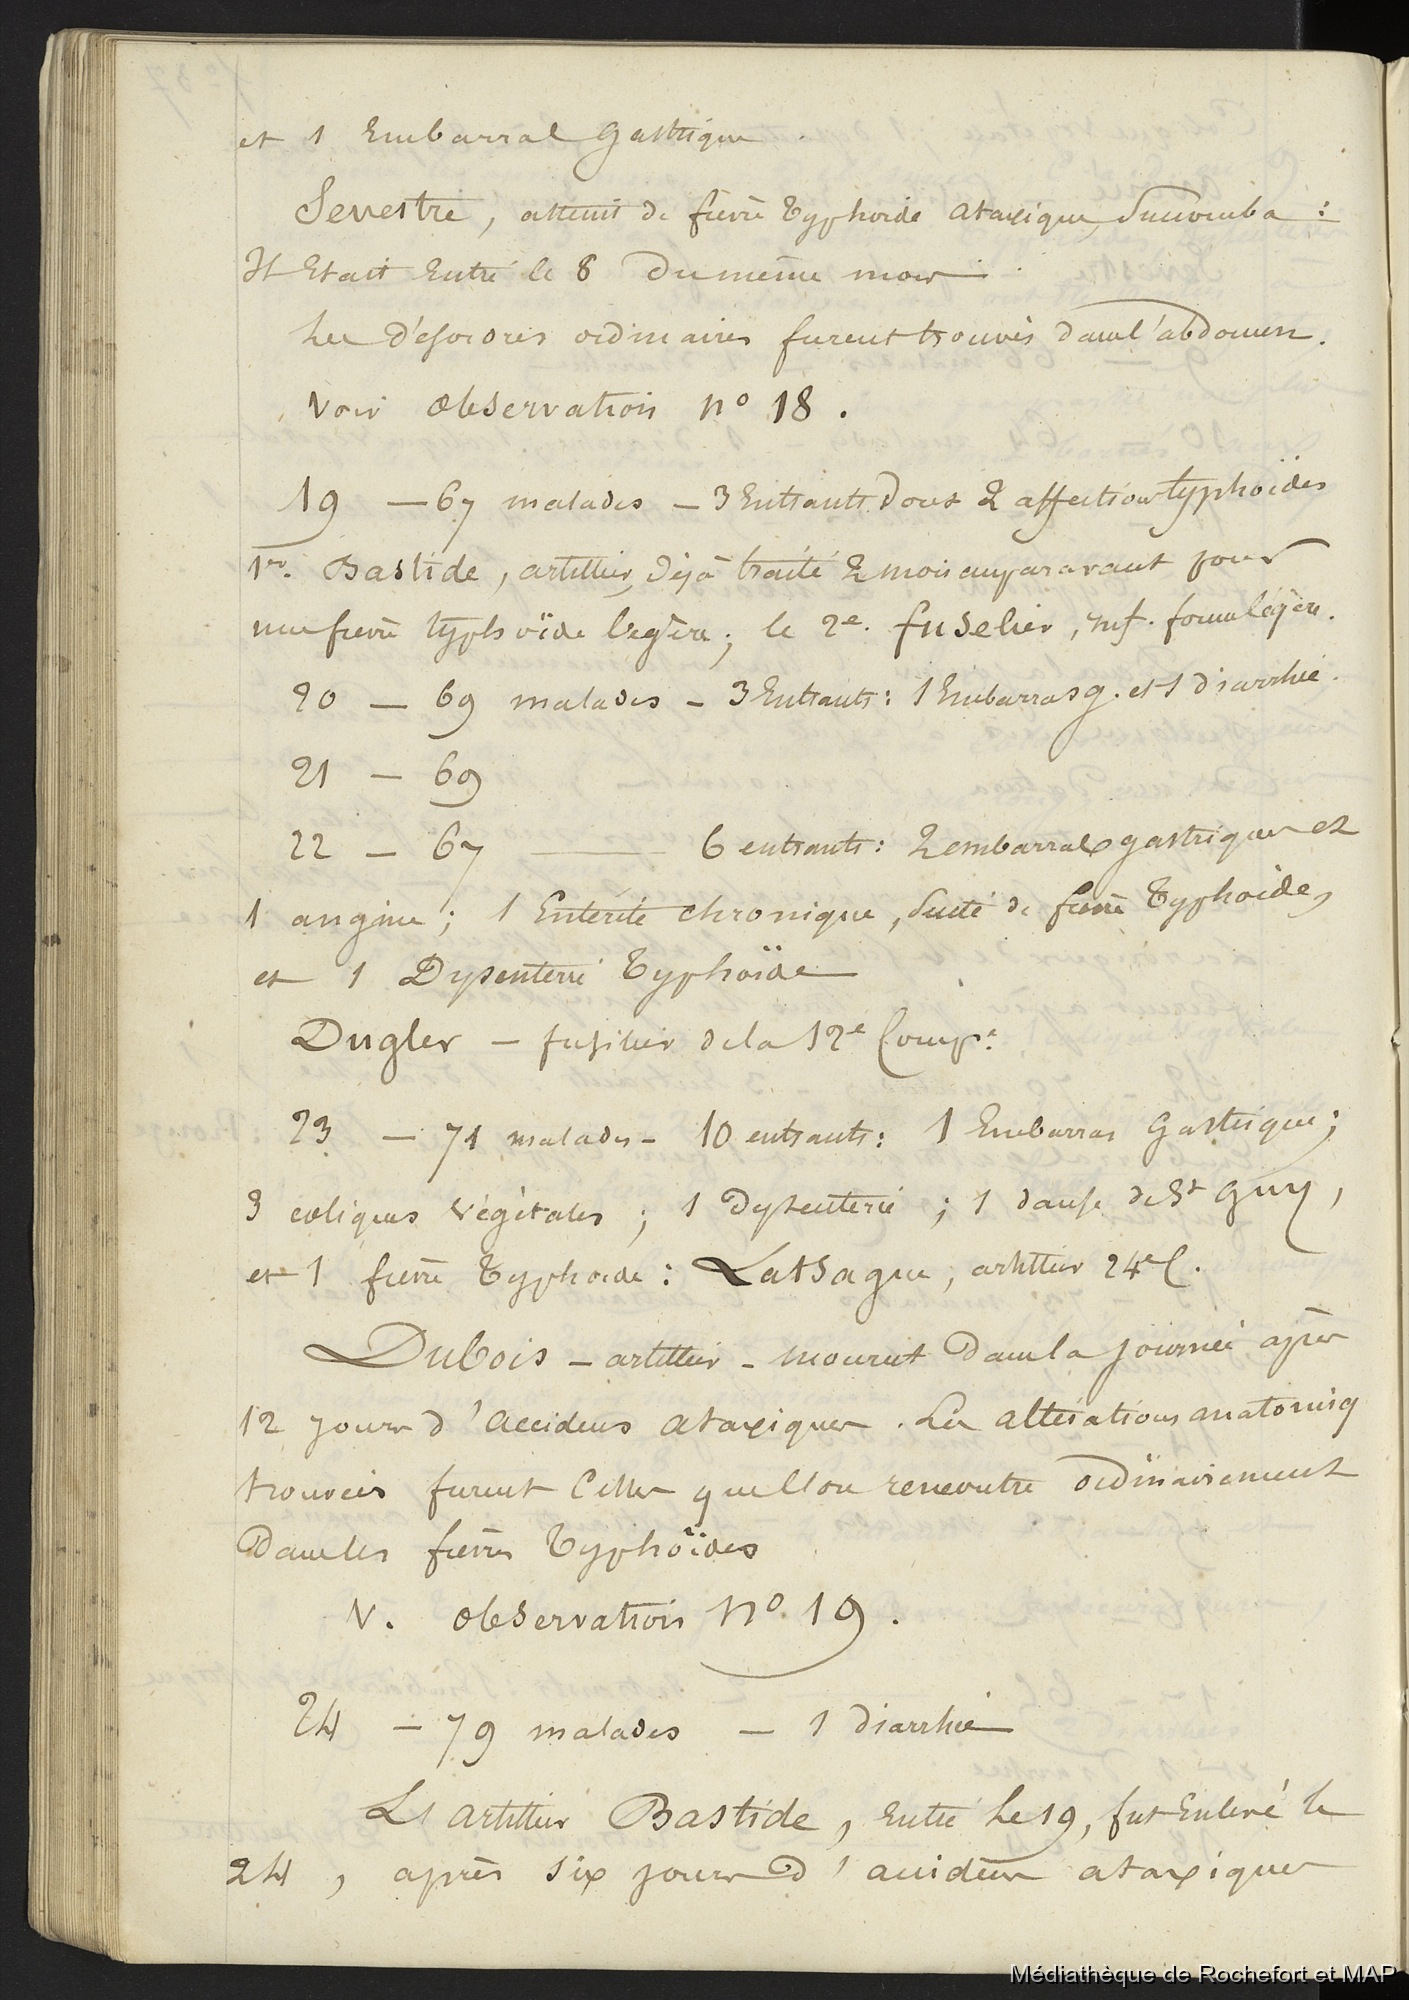 et 1 Embarras gastrique.
Senestre, atteint de fievre typhoide ataxique, Succomba :
Il Etait Entré le 8 du même mois.
Les désordres ordinaires furent trouvés dans l'abdomen.
Voir Observation n° 18.
19 — 67 malades — 3 Entrants dont 2 affections typhoïdes
1er. Bastide, artilleur, déjà traité 2 mois auparavant pour
une fievre typhoïde légère; le 2e. fuselier, inf. forme légère.
20 — 69 malades - 3 Entrants : 1 Embarras g. et 1 diarrhée.
21 — 69
22 — 67 — 6 entrants : 2 embarras gastriques et
1 angine ; 1 Entérite chronique, Suite de fievre Typhoide,
et 1 Dysenterie Typhoïde
Dugler — fusilier de la 12e Compe.
23 — 71 malades - 10 entrants : 1 Embarras Gastrique ;
3 coliques végétales ; 1 Dysenterie ; 1 danse de St Guy,
et 1 fievre Typhoide : Latsague, artilleur 24e C.
Dubois — artilleur - mourut dans la journée après
12 jours d'accidens ataxiques. Les altérations anatomiq
trouvées furent Celles que l'on rencontre ordinairement
Dans les fievres Typhoïdes
V. Observation N° 19.
24 — 79 malades — 1 diarrhée
L'artilleur Bastide, Entré le 19, fut Enlevé le
24, après six jours d'accidens ataxiques
Médiathèque de Rochefort et MAP